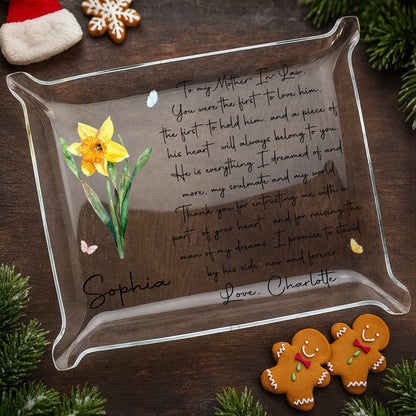 To my Mother In Law
You were the first to love him,
the first to hold him, and a piece of
his heart will always belong to you
He is everything I dreamed of and
more, my soulmate and my world
Thank you for entrusting me with a
part of your heart and for raising the
man of my dreams. I promise to stand
by his side, now and forever
Love, Charlotte
Sophia